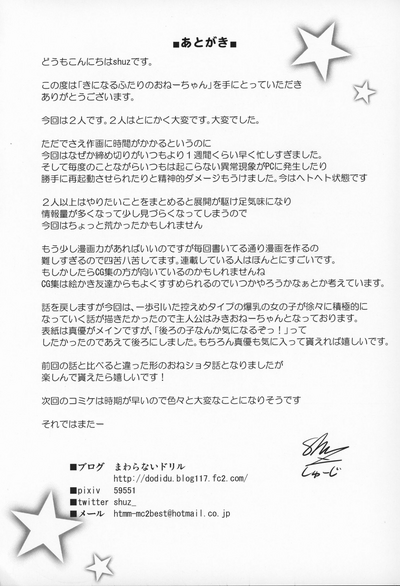 ■あとがき■
どうもこんにちはshuzです。
この度は「きになるふたりのおねーちゃん」を手にとっていただき
ありがとうございます。
今回は２人です。２人はとにかく大変です。大変でした。
ただでさえ作画に時間がかかるというのに
今回はなぜか締め切りがいつもより１週間くらい早く忙しすぎました。
そして毎度のことながらいつもは起こらない異常現象がPCに発生したり
勝手に再起動させられたりと精神的ダメージもうけました。今はヘトヘト状態です
２人以上はやりたいことをまとめると展開が駆け足気味になり
情報量が多くなって少し見づらくなってしまうので
今回はちょっと荒かったかもしれません
もう少し漫画力があればいいのですが毎回書いてる通り漫画を作るの
難しすぎるので四苦八苦してます。連載している人はほんとにすごいです。
もしかしたらCG集の方が向いているのかもしれませんね
CG集は絵かき友達からもよくすすめられるのでいつかやろうかなぁとか考えています。
話を戻しますが今回は、一歩引いた控えめタイプの爆乳の女の子が徐々に積極的に
なっていく話が描きたかったので主人公はみきおねーちゃんとなっております。
表紙は真優がメインですが、「後ろの子なんか気になるぞっ！」って
したかったのであえて後ろにしました。もちろん真優も気に入って貰えれば嬉しいです。
前回の話と比べると違った形のおねショタ話となりましたが
楽しんで貰えたら嬉しいです！
次回のコミケは時期が早いので色々と大変なことになりそうです
それではまたー
shuz
しゅーじ
■ブログ　まわらないドリル
http://dodidu.blog117.fc2.com/
■pixiv　59551
■twitter　shuz_
■メール　htmm-mc2best@hotmail.co.jp